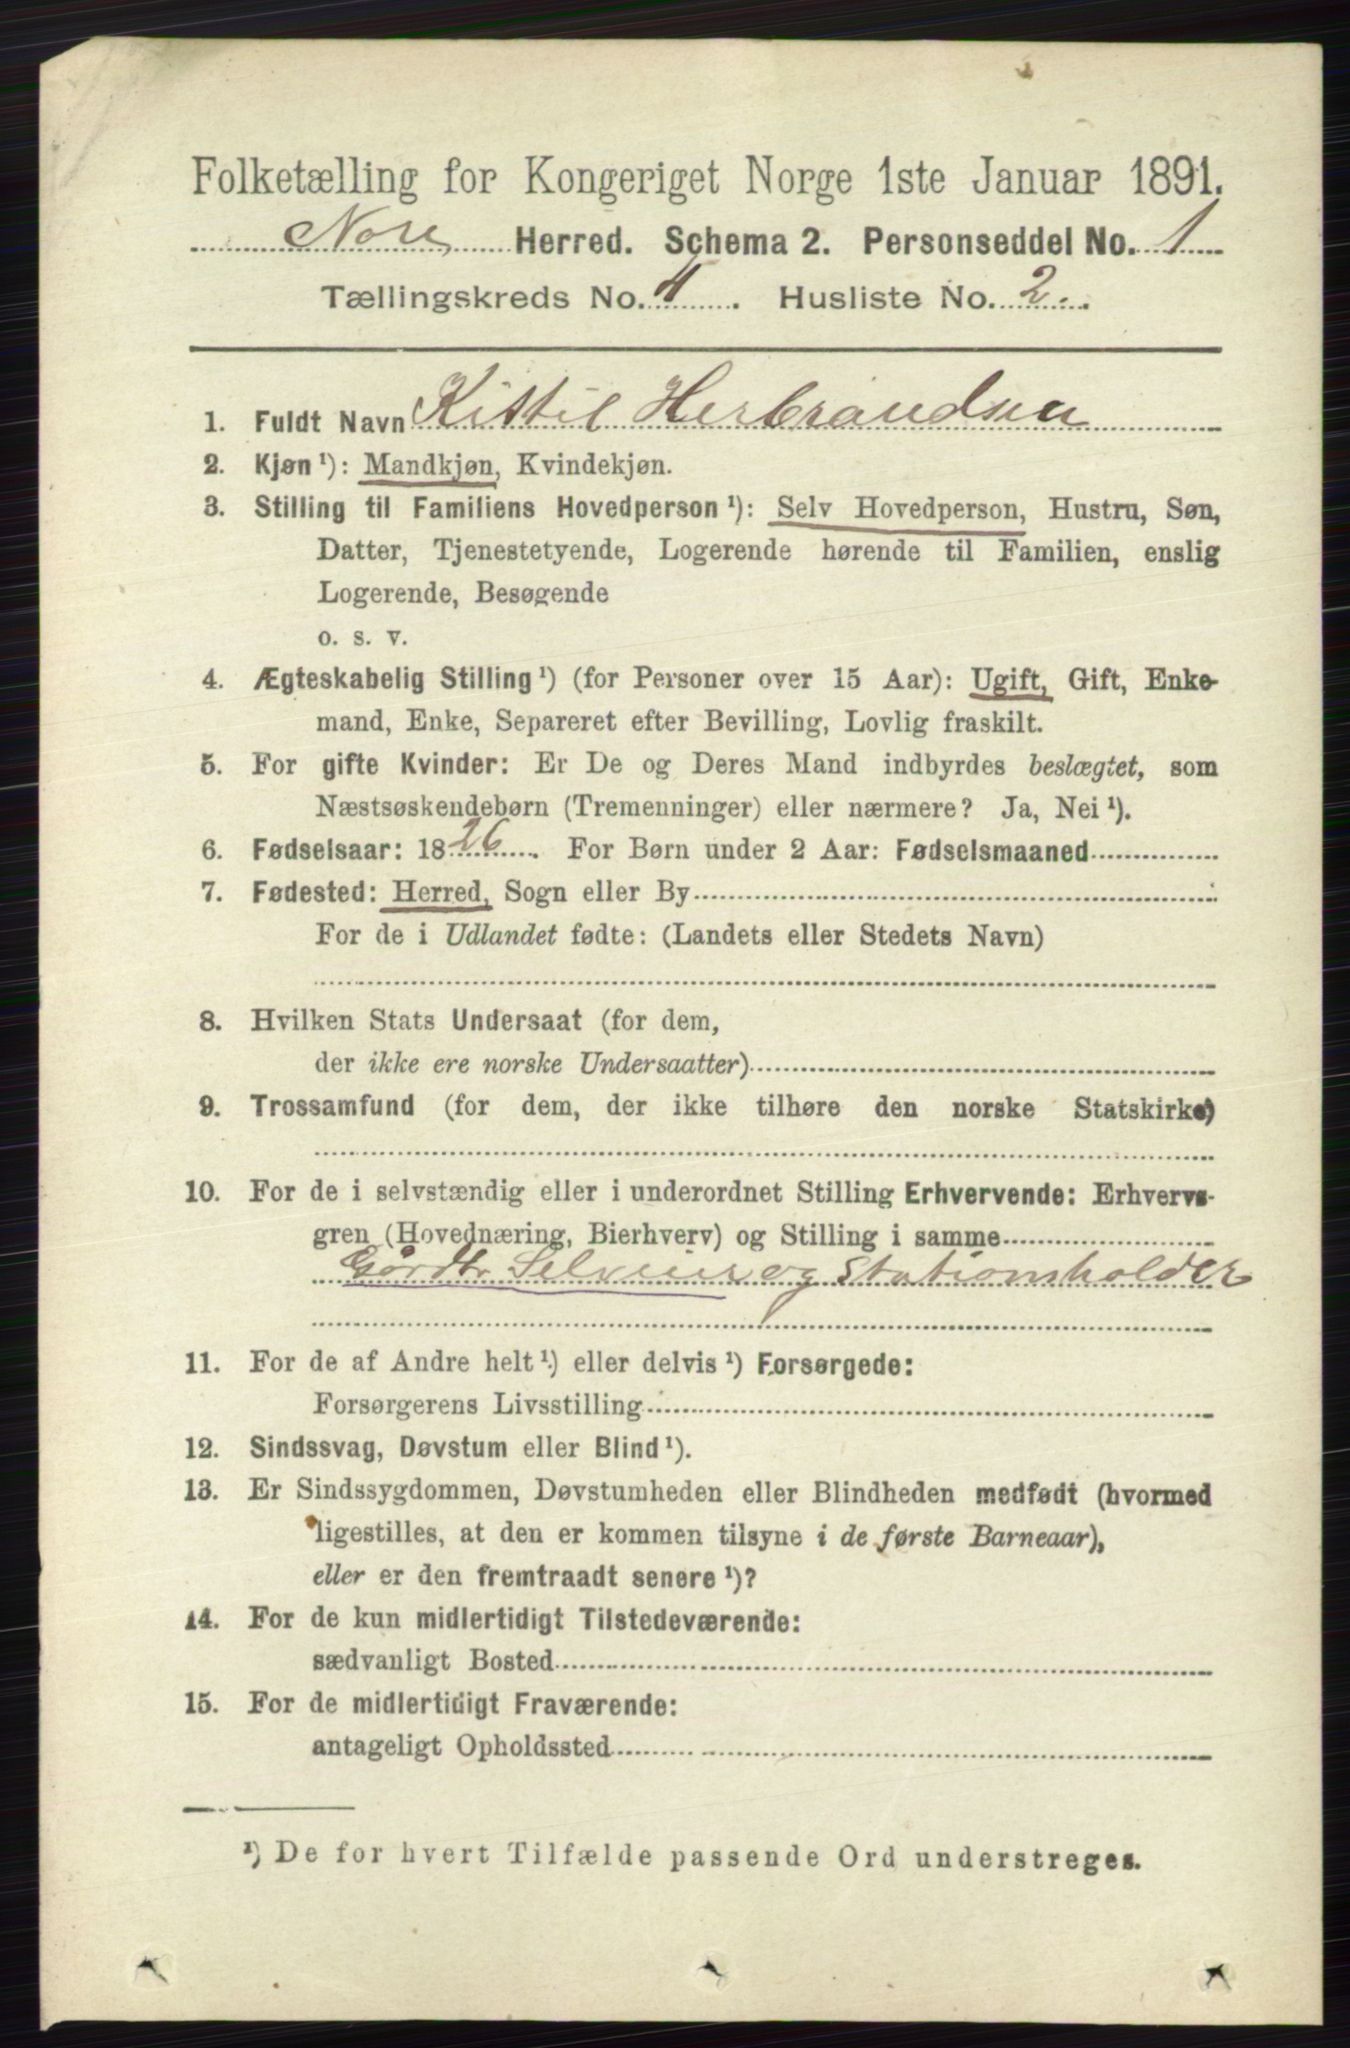 Folketælling for Kongeriget Norge 1ste Januar 1891.
Nore Herred. Schema 2. Personseddel No. 1
Tællingskreds No. 4. Husliste No. 2.
1. Fuldt Navn Kittil Herbrandsen
2. Kjøn ¹): Mandkjøn, Kvindekjøn.
3. Stilling til Familiens Hovedperson ¹): Selv Hovedperson, Hustru, Søn,
Datter, Tjenestetyende, Logerende hørende til Familien, enslig
Logerende, Besøgende
o. s. v.
4. Ægteskabelig Stilling ¹) (for Personer over 15 Aar): Ugift, Gift, Enke-
mand, Enke, Separeret efter Bevilling, Lovlig fraskilt.
5. For gifte Kvinder: Er De og Deres Mand indbyrdes beslægtet, som
Næstsøskendebørn (Tremenninger) eller nærmere? Ja, Nei ¹).
6. Fødselsaar: 1826. For Børn under 2 Aar: Fødselsmaaned
7. Fødested: Herred, Sogn eller By
For de i Udlandet fødte: (Landets eller Stedets Navn)
8. Hvilken Stats Undersaat (for dem,
der ikke ere norske Undersaatter)
9. Trossamfund (for dem, der ikke tilhøre den norske Statskirke)
10. For de i selvstændig eller i underordnet Stilling Erhvervende: Erhvervs-
gren (Hovednæring, Bierhverv) og Stilling i samme
Gårdbr Selveier og Stationsholder
11. For de af Andre helt ¹) eller delvis ¹) Forsørgede:
Forsørgerens Livsstilling
12. Sindssvag, Døvstum eller Blind ¹).
13. Er Sindssygdommen, Døvstumheden eller Blindheden medfødt (hvormed
ligestilles, at den er kommen tilsyne i de første Barneaar),
eller er den fremtraadt senere ¹)?
14. For de kun midlertidigt Tilstedeværende:
sædvanligt Bosted
15. For de midlertidigt Fraværende:
antageligt Opholdssted
¹) De for hvert Tilfælde passende Ord understreges.